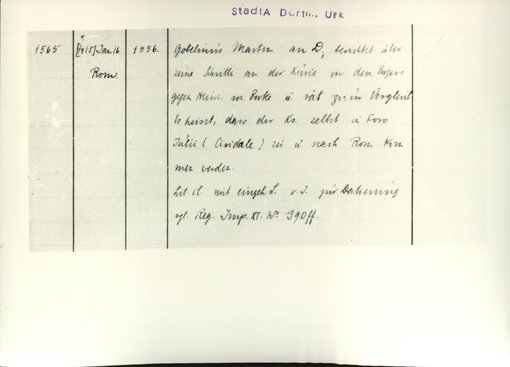 StadtA Dortm. Urk
1565 [1415] Jan. 16 1956. Gobelinus Martin an D, berichtet über
Rom. seine Schritte an der Kurie in den Prozess
gegen Heinr. von u. rät zum Vergleich
Es heisst, dass der Kg. selbst in Foro
Julii (Cividale) sei u. nach Rom kom
men werde.
Lit. cl. mit eingeh. S. o. J. zur Datierung
vgl. Reg. Imp. XI. Nr. 390ff.